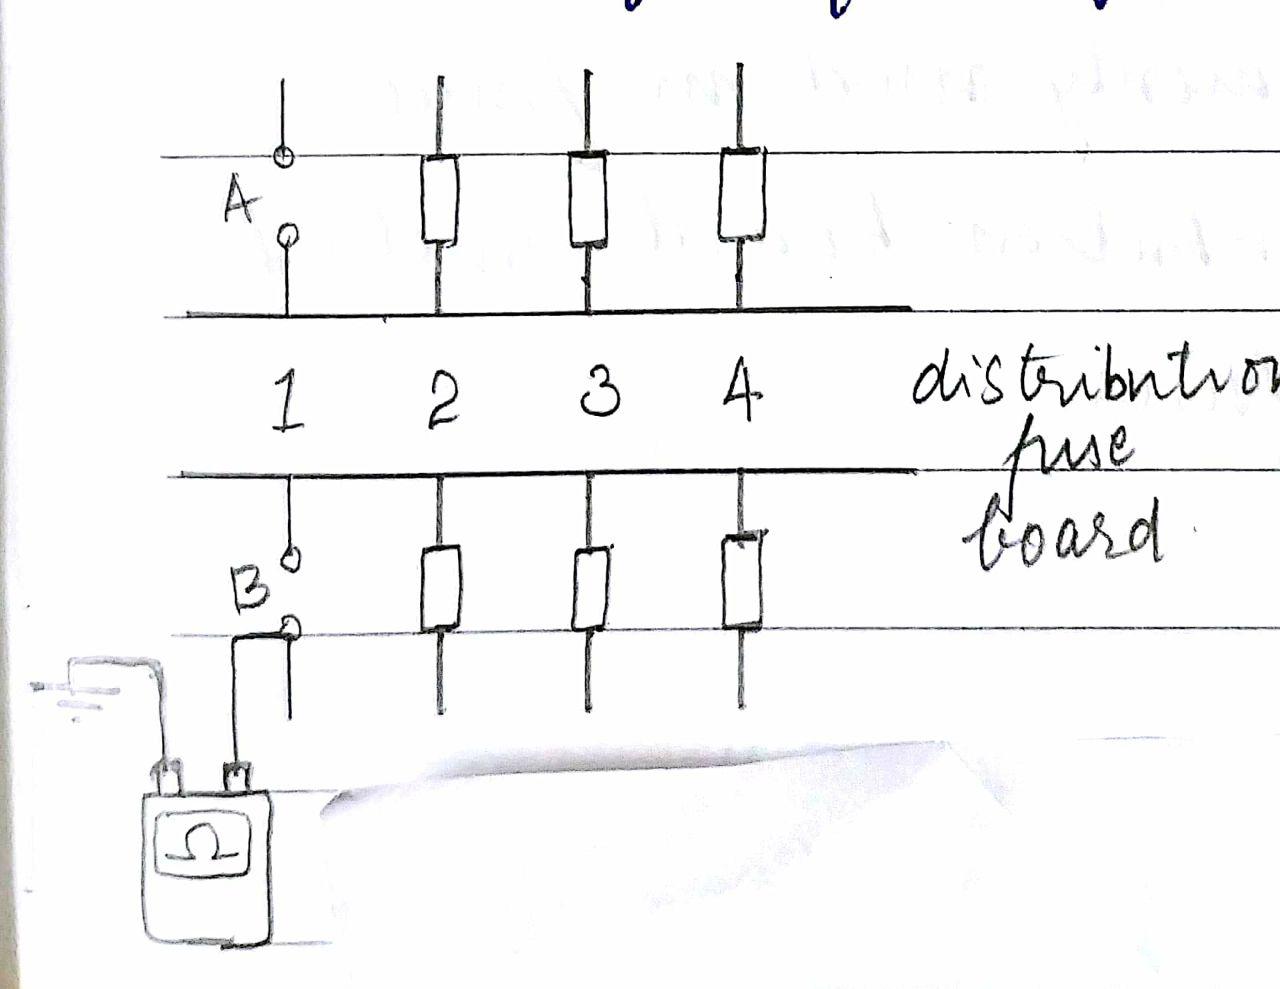 A
1 2 3 4 distribution
fuse
board
B
Ω